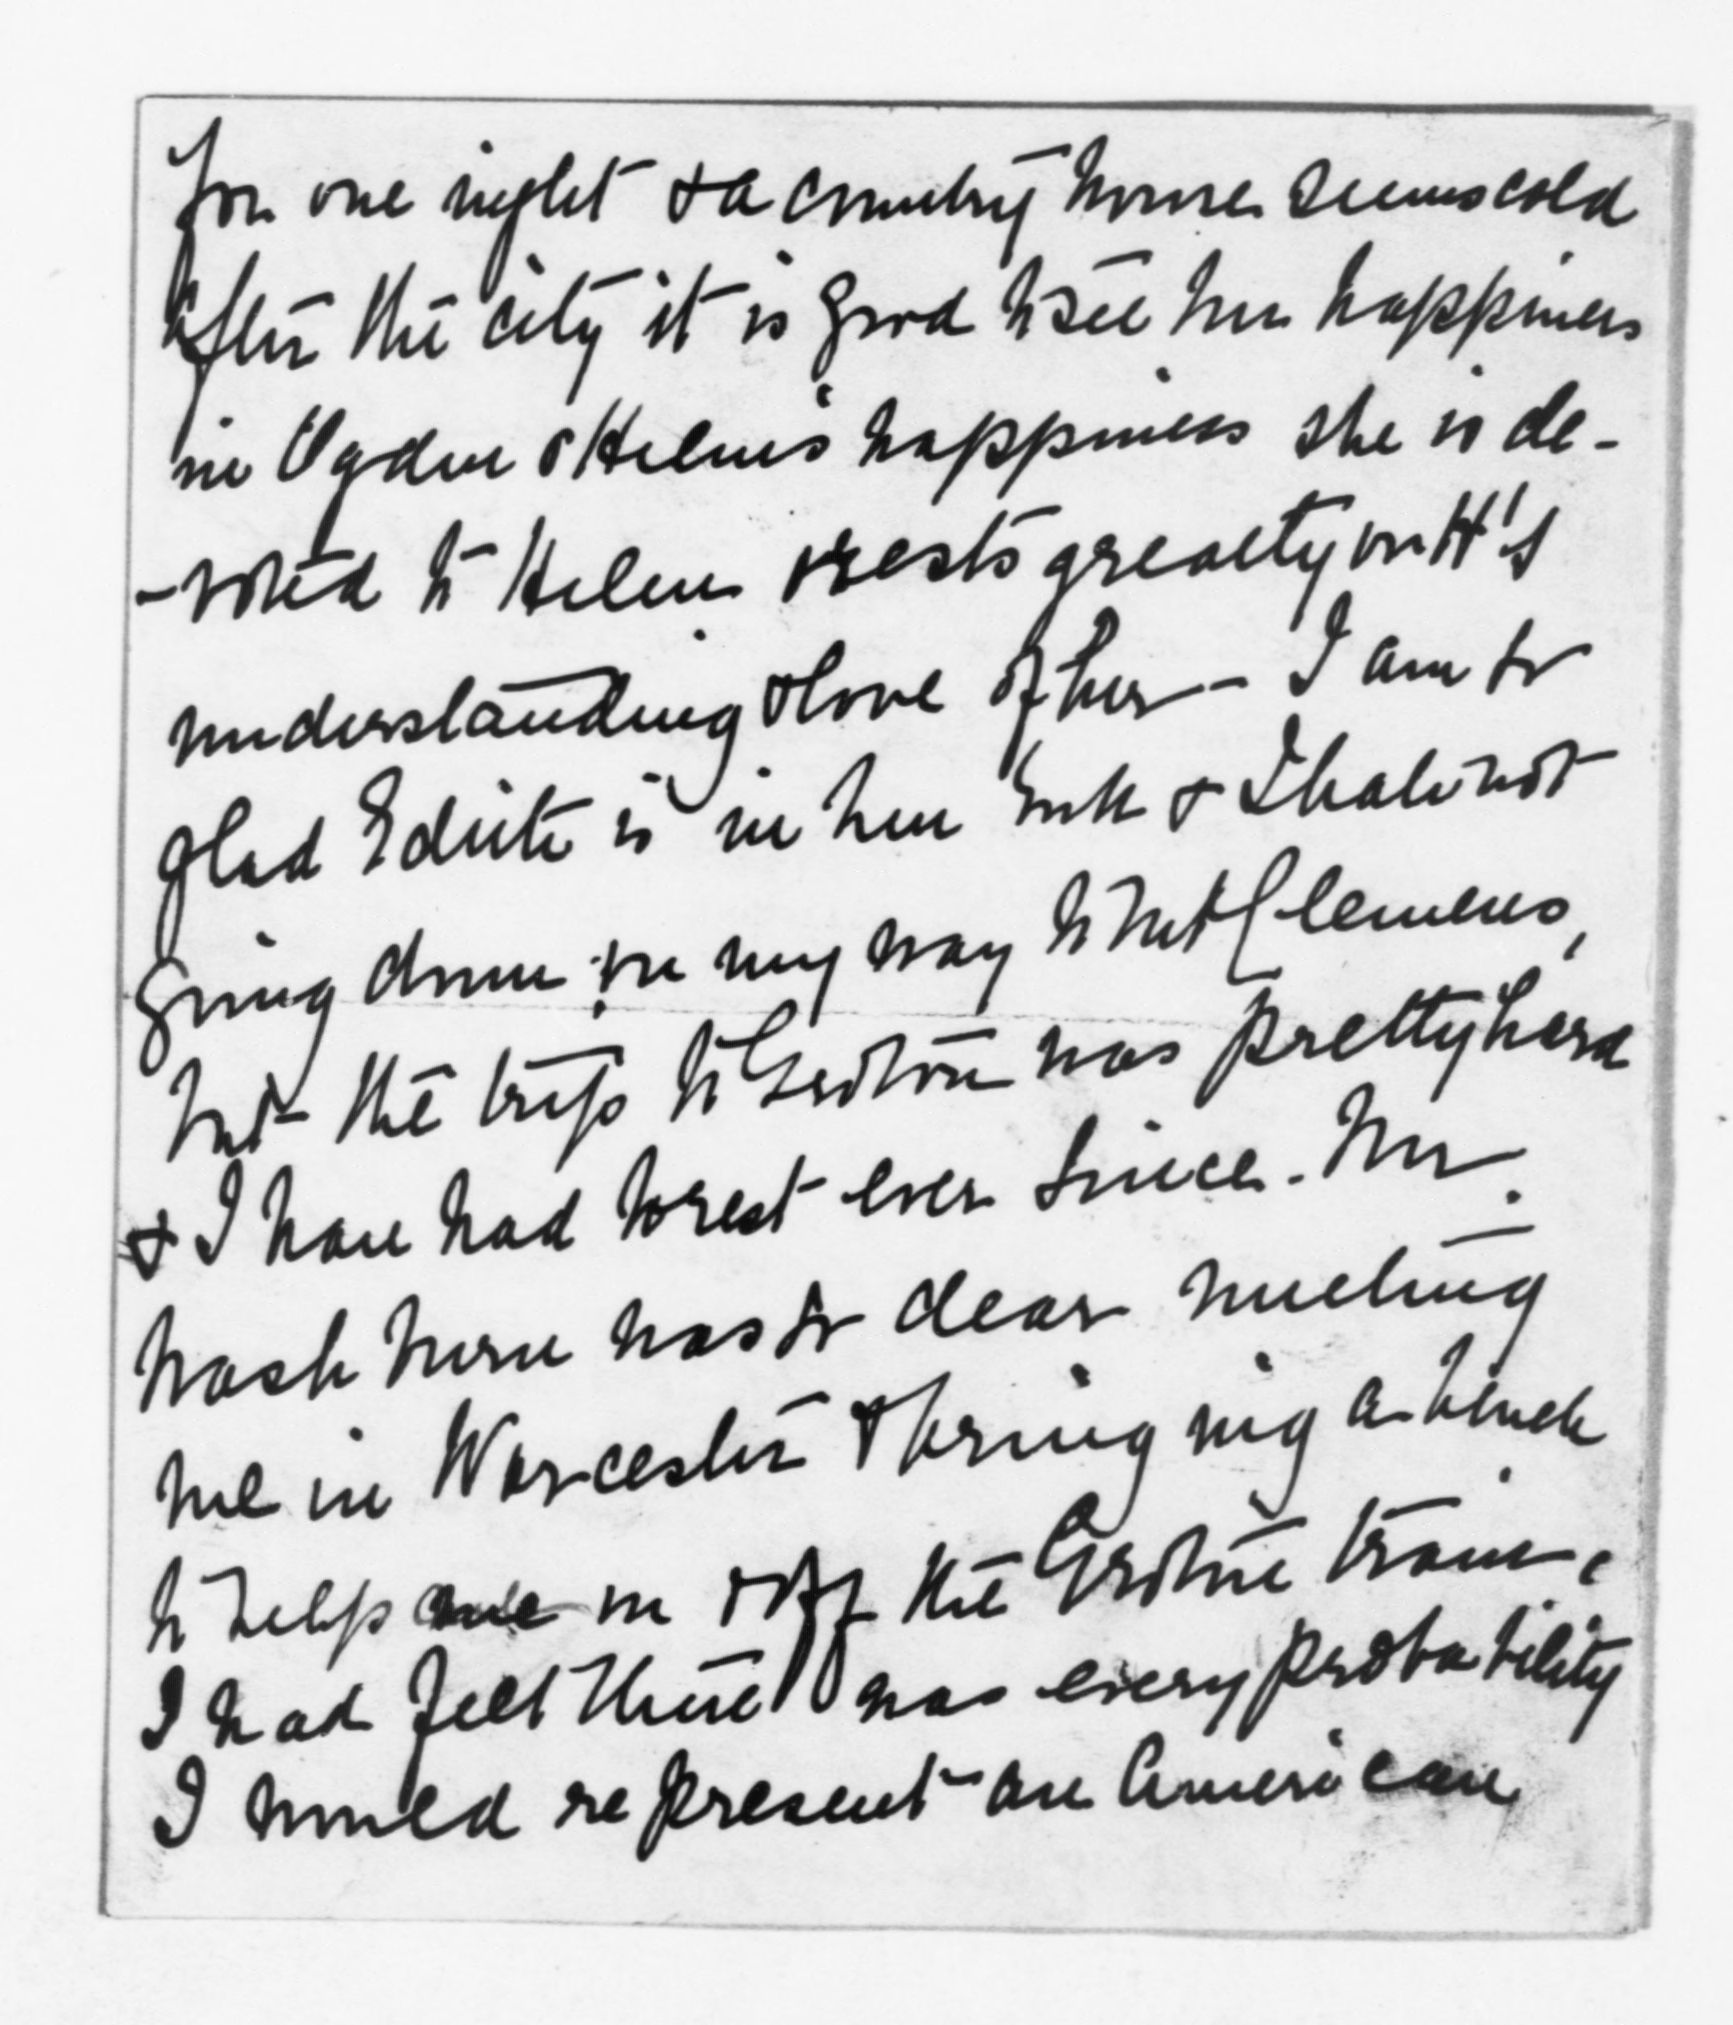 for one night & a country house seems cold
after the city it is good to see her happiness
in Ogden & Helen's happiness she is de-
-voted to Helen & rests greatly on H's
understanding & love of her - I am so
glad Edith is in her & I hate not
going down on my way to Mt Clemens,
but the trip to Groton was pretty hard
& I have had to rest ever since. Mr.
Washburn was so dear meeting
me in Worcester & bringing a
to help me on & off the Groton train.
I had felt there was every probability
I would represent an American